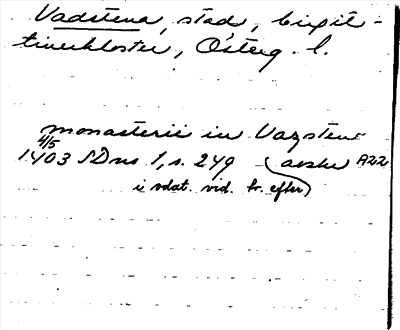 Vadstena, stad, birgit-
tinerkloster, Österg. l.
monasterii in Vazsten
4/5
1403 SDns 1, s. 249 (avskr A22
i odat. vid. br. efter)